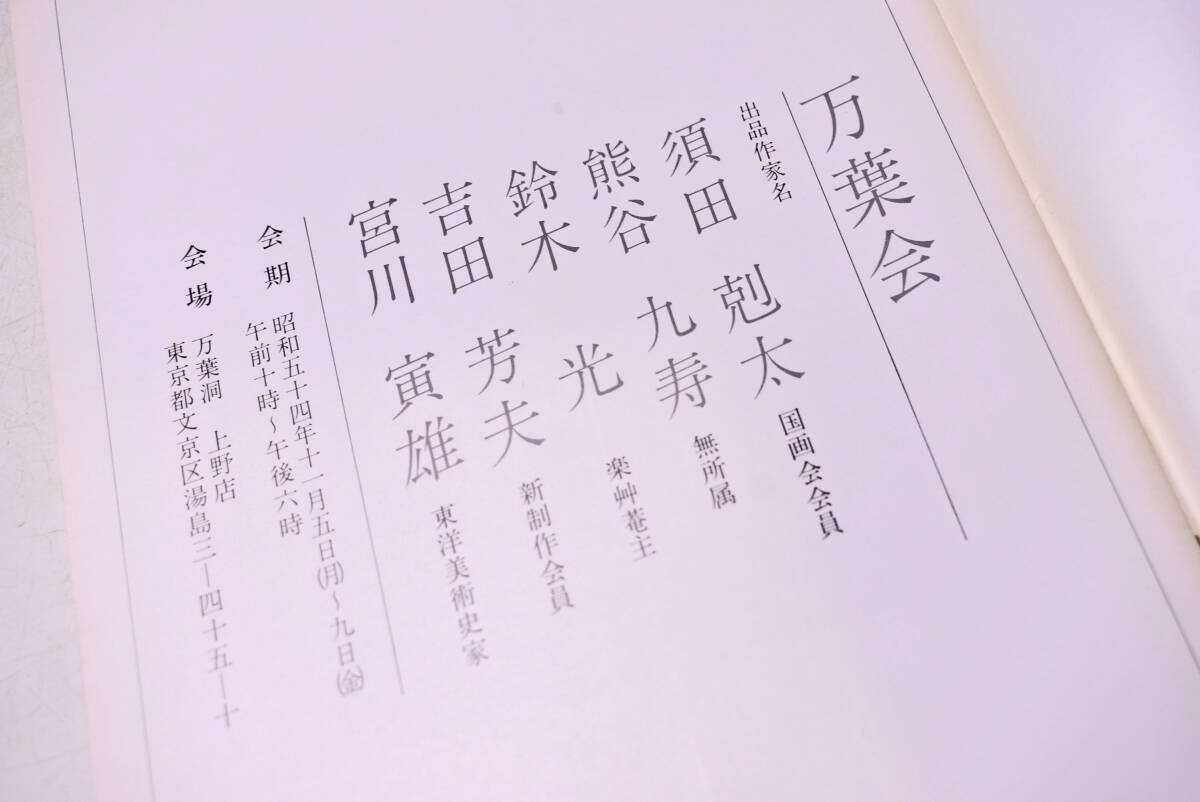 万葉会
出品作家名
須田 剋太 国画会会員
熊谷 九寿 無所属
鈴木 光 楽艸菴主
吉田 芳夫 新制作会員
宮川 寅雄 東洋美術史家
会期 昭和五十四年十一月五日㈪〜九日㈮
午前十時〜午後六時
会場 万葉洞 上野店
東京都文京区湯島三ー四十五ー十